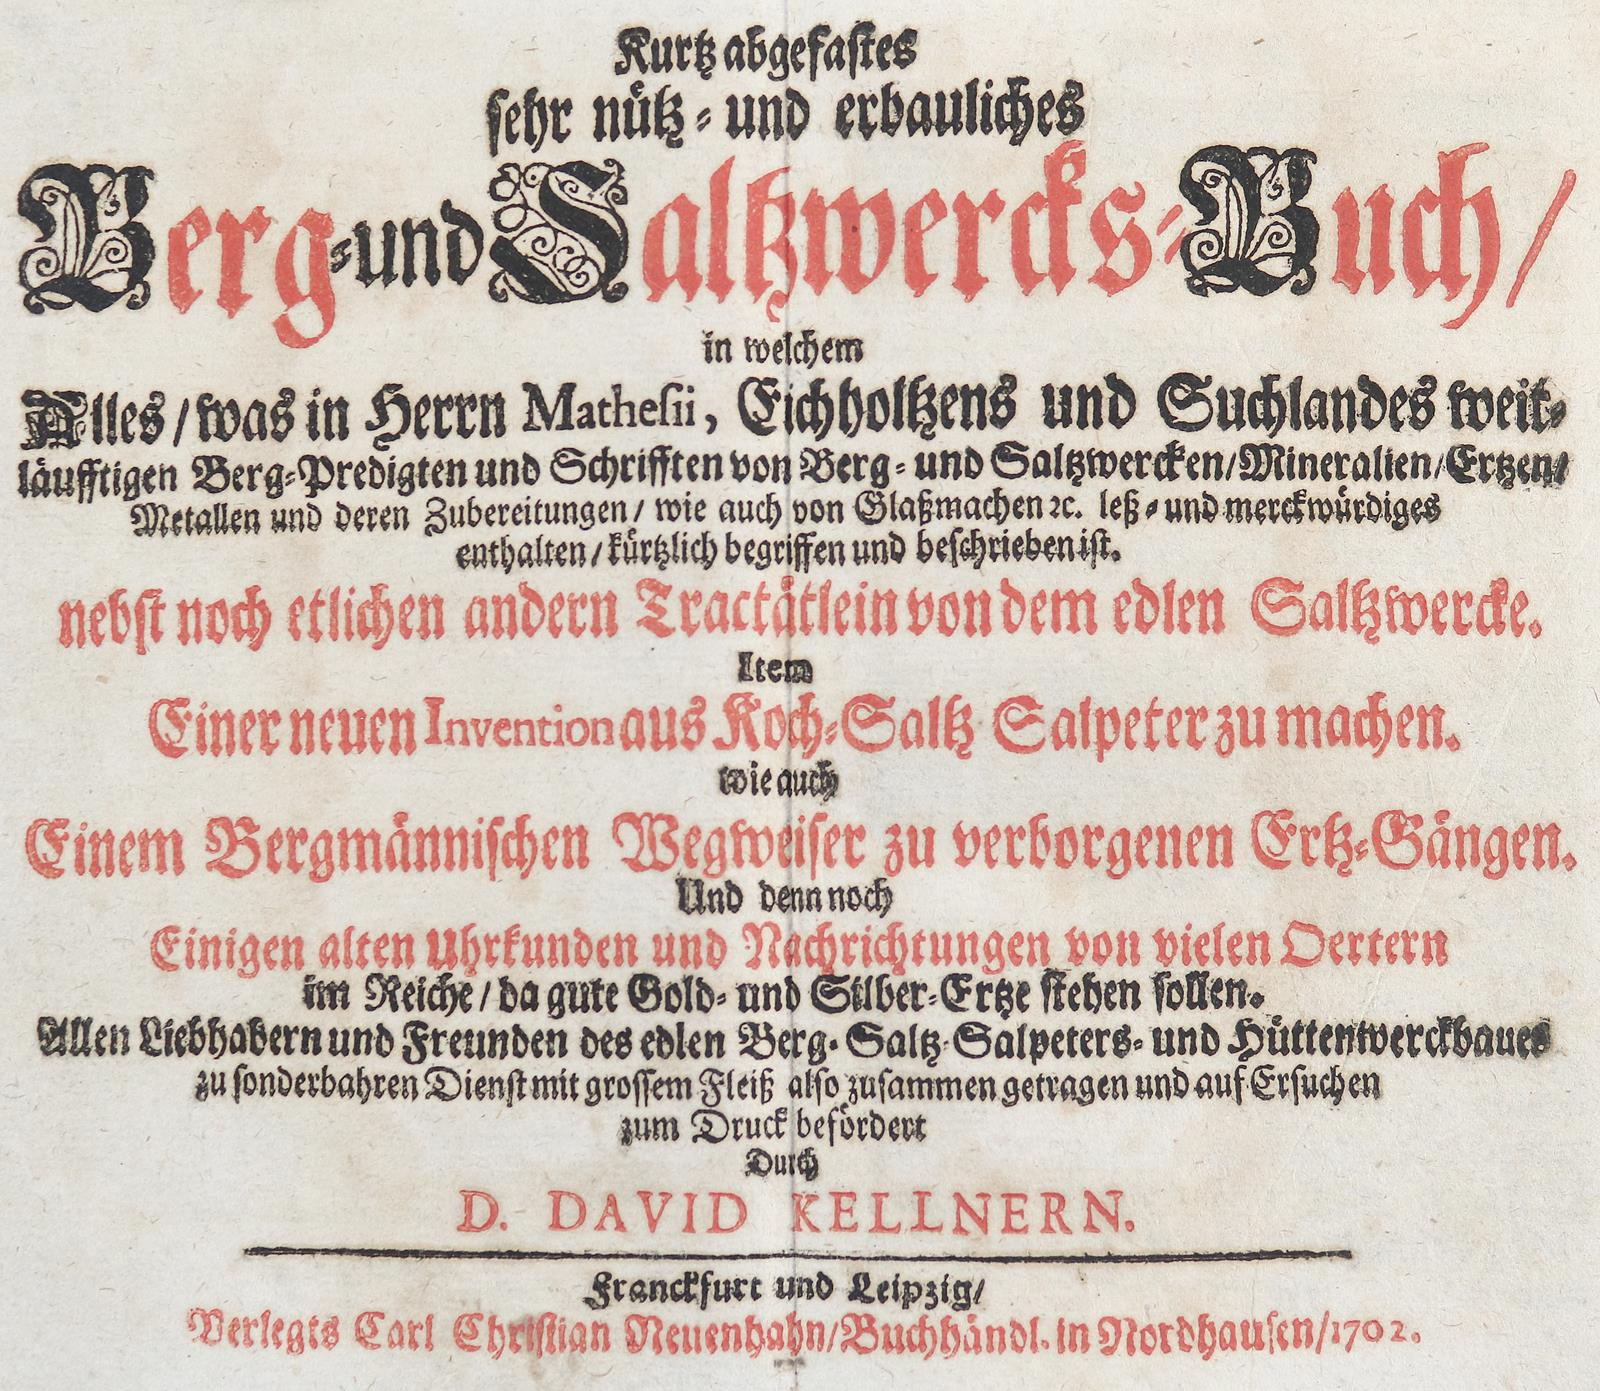 Kurtz abgefastes
sehr nütz- und erbauliches
Berg- und Saltzwercks-Buch/
in welchem
Alles/ was in Herrn Mathesii, Eichholtzens und Suchlandes weit-
läufftigen Berg-Predigten und Schrifften von Berg- und Saltzwercken/ Mineralien/ Ertzen/
Metallen und deren Zubereitungen/ wie auch von Glaßmachen ꝛc. leß- und merckwürdiges
enthalten/ kürtzlich begriffen und beschrieben ist.
nebst noch etlichen andern Tractätlein von dem edlen Saltzwercke.
Item
Einer neuen Invention aus Koch-Saltz Salpeter zu machen.
wie auch
Einem Bergmännischen Wegweiser zu verborgenen Ertz-Gängen.
Und denn noch
Einigen alten Uhrkunden und Nachrichtungen von vielen Oertern
im Reiche/ da gute Gold- und Silber-Ertze stehen sollen.
Allen Liebhabern und Freunden des edlen Berg- Saltz- Salpeters- und Hüttenwerckbaues
zu sonderbahren Dienst mit grossem Fleiß also zusammen getragen und auf Ersuchen
zum Druck befördert
Durch
D. DAVID KELLNERN.
Franckfurt und Leipzig/
Verlegts Carl Christian Neuenhahn/ Buchhändl. in Nordhausen/ 1702.